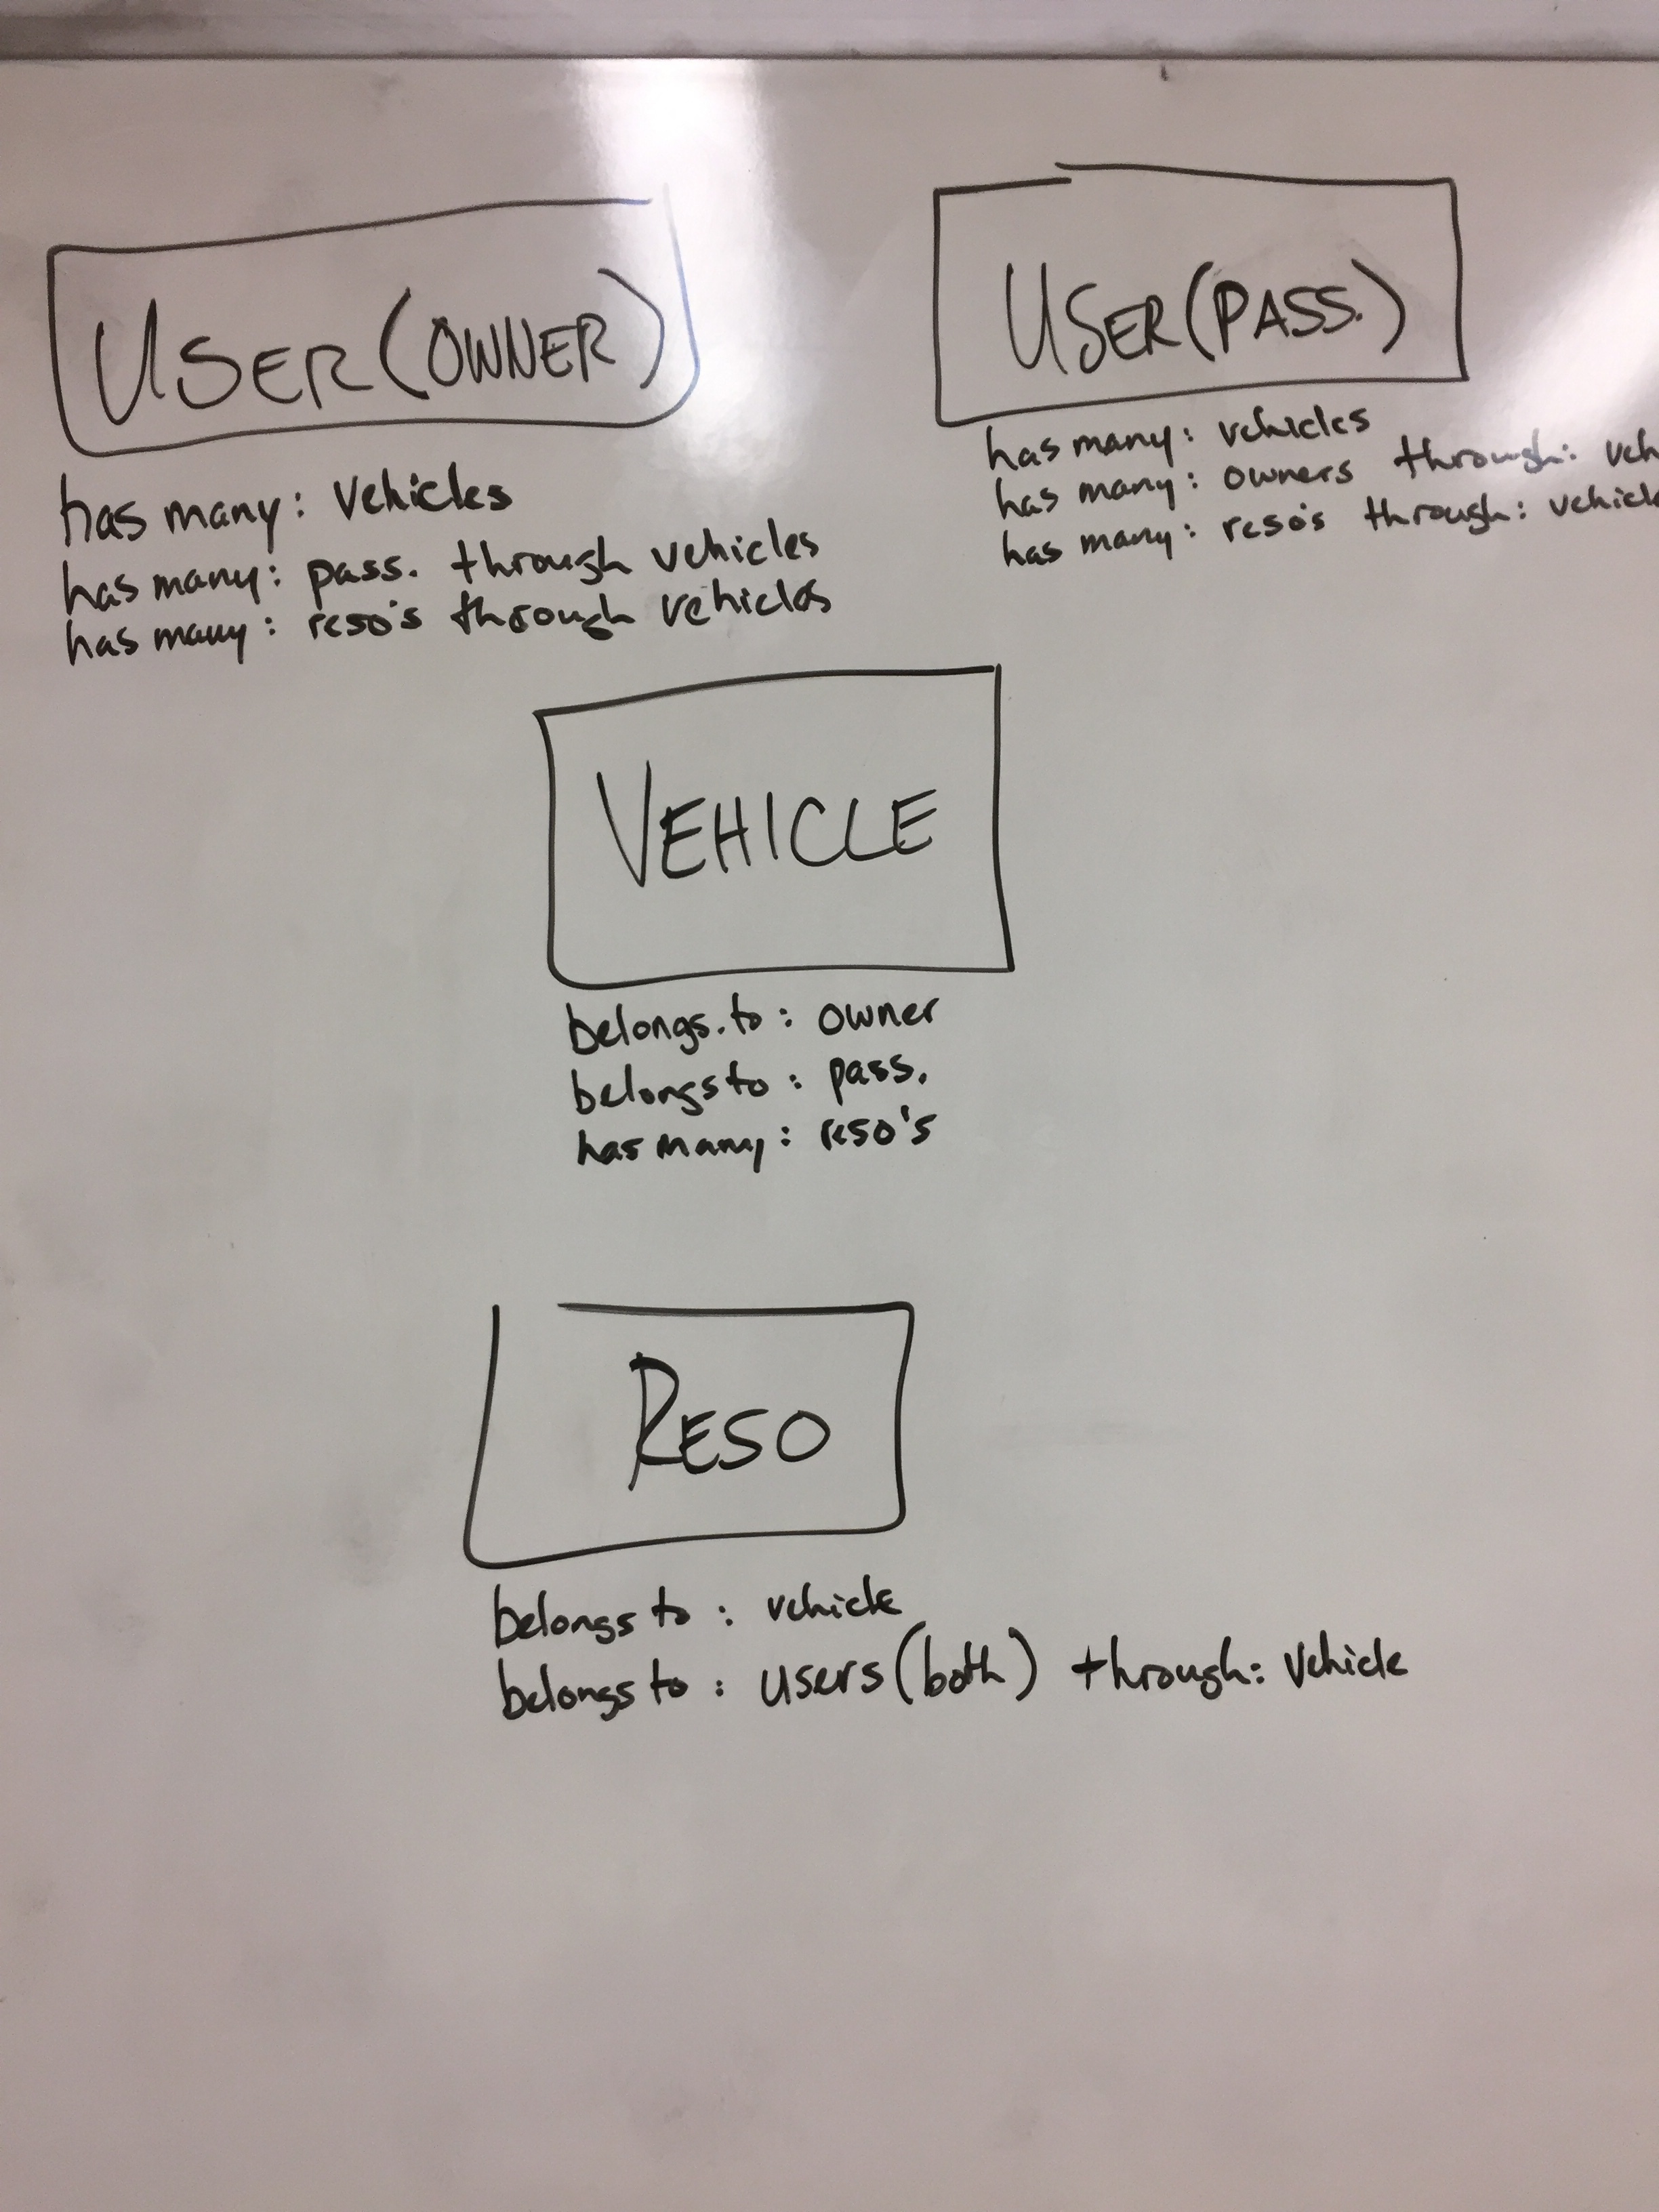 USER (OWNER)
has many: vehicles
has many: pass. through vehicles
has many: reso's through vehicles
USER (PASS.)
has many: vehicles
has many: owners through:
has many: reso's through:
VEHICLE
belongs.to: owner
belongs to: pass.
has many: reso's
RESO
belongs to: vehicle
belongs to: users (both) through: vehicle